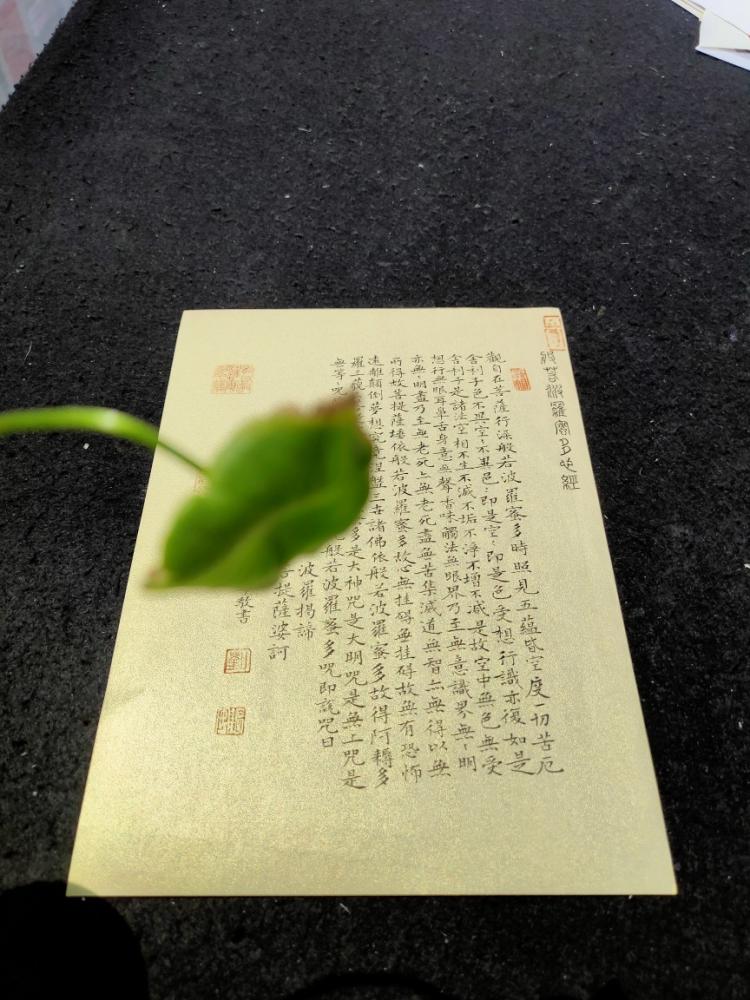 般若波羅蜜多心經
觀自在菩薩行深般若波羅蜜多時照見五蘊皆空度一切苦厄
舍利子色不異空々不異色々即是空々即是色受想行識亦復如是
舍利子是諸法空相不生不滅不垢不淨不增不減是故空中無色無受
想行無眼耳鼻舌身意無聲香味觸法無眼界乃至無意識界無々明
亦無々明盡乃至無老死亦無老死盡無苦集滅道無智亦無得以無
所得故菩提薩埵依般若波羅蜜多故心無挂碍無挂碍故無有恐怖
遠離顛倒夢想究竟涅盤三世諸佛依般若波羅蜜多故得阿耨多
羅三藐多是大神咒是大明咒是無上咒是
無等々咒般若波羅蜜多咒即說咒曰
波羅揭諦
菩提薩婆訶
敬書
劉